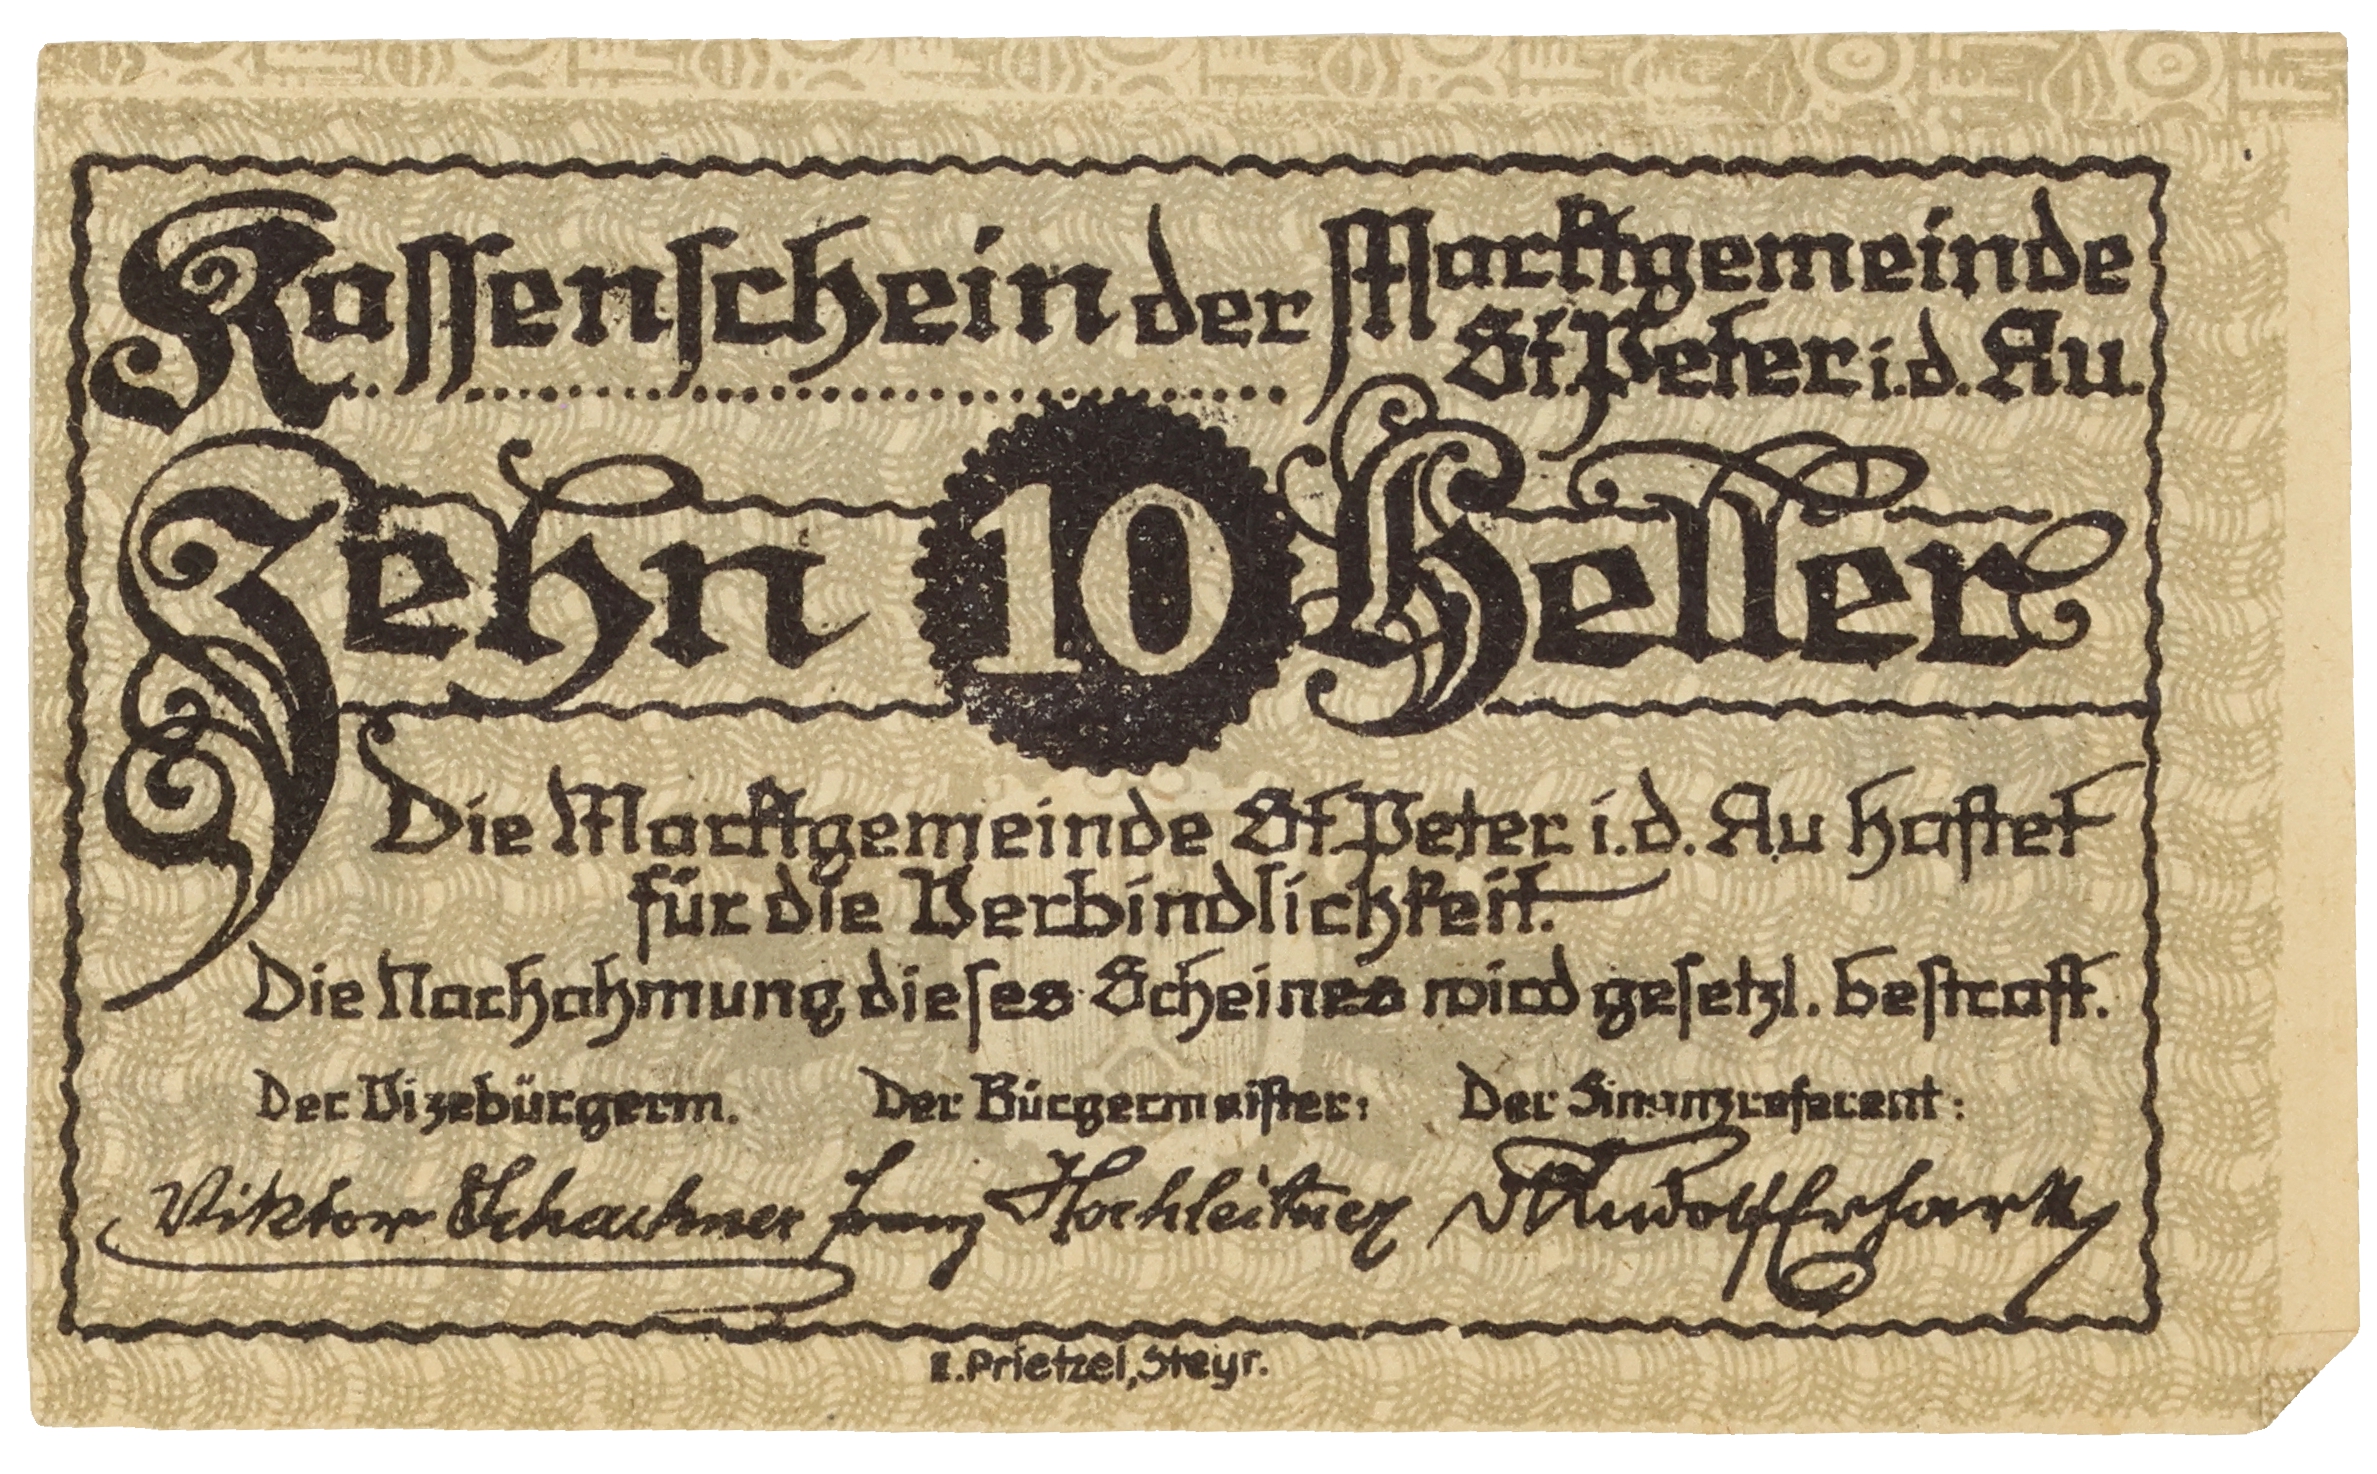 Kassenschein der Marktgemeinde
St. Peter i. d. Au.
Zehn 10 Heller
Die Marktgemeinde St. Peter i. d. Au haftet
für die Verbindlichkeit.
Die Nachahmung dieses Scheines wird gesetzl. bestraft.
Der Vizebürgerm. Der Bürgermeister: Der Finanzreferent:
Viktor Schachner Franz Hochleitner Rudolf Erhart
E. Prietzel, Steyr.